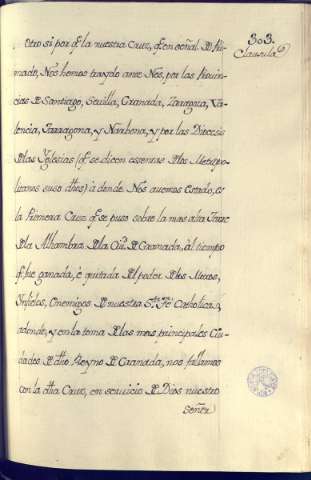 303.
Clausula
Otro si por q̃ la nuestra Cruz, q̃ en señal de Pri-
mado, Nos hemos traydo ante Nos, por las Provin-
cias de Santiago, Sevilla, Granada, Zaragoza, Va-
lencia, Tarragona, y Narbona, y por las Diocesis
de las Yglesias (q̃ se dicen esentas de las Metropo-
litanas suso dhas) à donde Nos avemos estado, es
la Primera Cruz q̃ se puso sobre la mas alta Torre
de la Alhambra de la Ciu.ᵈ de Granada, al tiempo
q̃ fue ganada, è quitada del poder de los Moros,
Ynfieles, Enemigos de nuestra S.ᵗᵃ Fè Catholica; y
adende, y en la toma de las mas principales Ciu-
dades de dho Reyno de Granada, nos fallamos
con la dha Cruz, en servicio de Dios nuestro
Señor